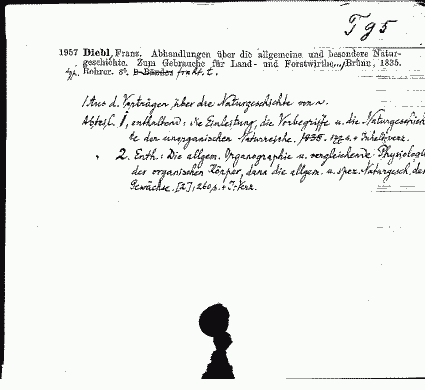 T g 5
1957 Diebl, Franz. Abhandlungen über die allgemeine und besondere Natur-
geschichte. Zum Gebrauche für Land- und Forstwirthe. Brünn, 1835.
typ. Rohrer. 8°. 2 Bände
/Aus d. Vorträgen über die Naturgeschichte von
Abteil. 1, enthaltend: die Einleitung, die Vorbegriffe u. die Naturgeschich-
te der unorganischen Naturreiche. 1835. + Inhaltsverz.
" 2. Enth.: Die allgem. Organographie u. vergleichende Physiologie
der organischen Körper, dann die allgem. u. spez. Naturgesch. der
Gewächse. [2], 260 p. + I.-Verz.